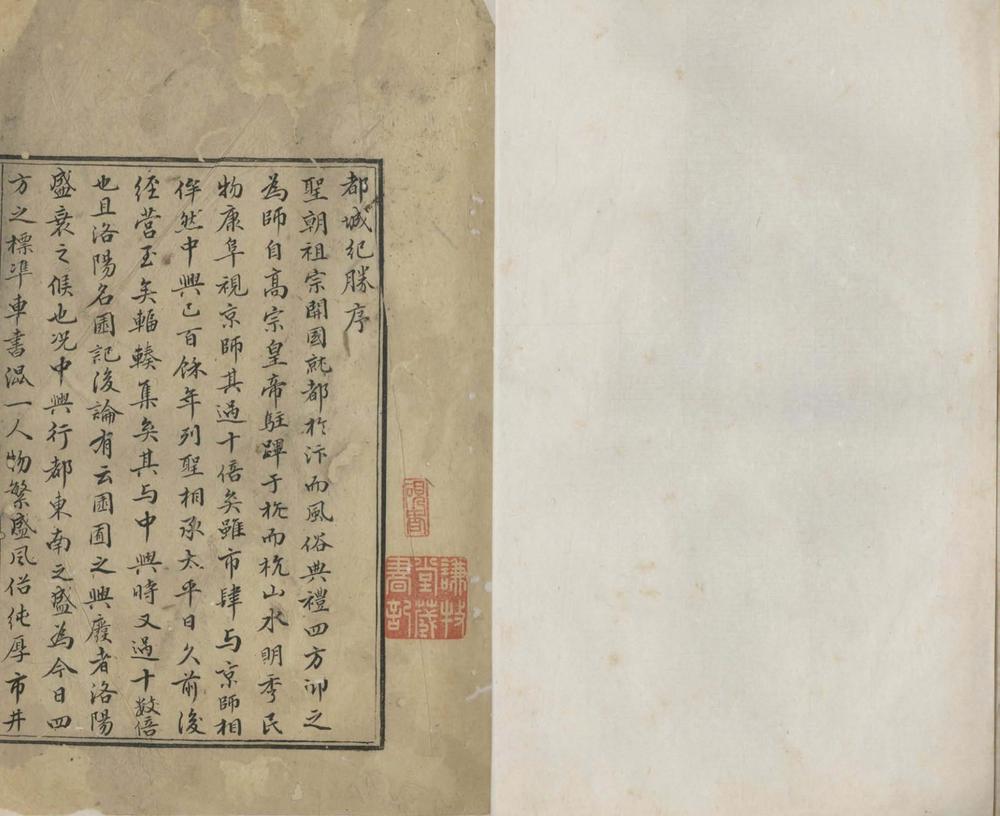 都城紀勝序
聖朝祖宗開國就都扵汴而風俗典禮四方仰之
為師自髙宗皇帝駐蹕于杭而杭山水明秀民
物康阜視京師其過十倍矣雖市肆与京師相
侔然中興已百餘年列聖相承太平日久前後
經營至矣輻輳集矣其与中興時又過十數倍
也且洛陽名園記後論有云園囿之興廢者洛陽
盛衰之候也况中興行都東南之盛為今日四
方之標準車書混一人物繁盛風俗純厚市井
謙牧堂藏書記